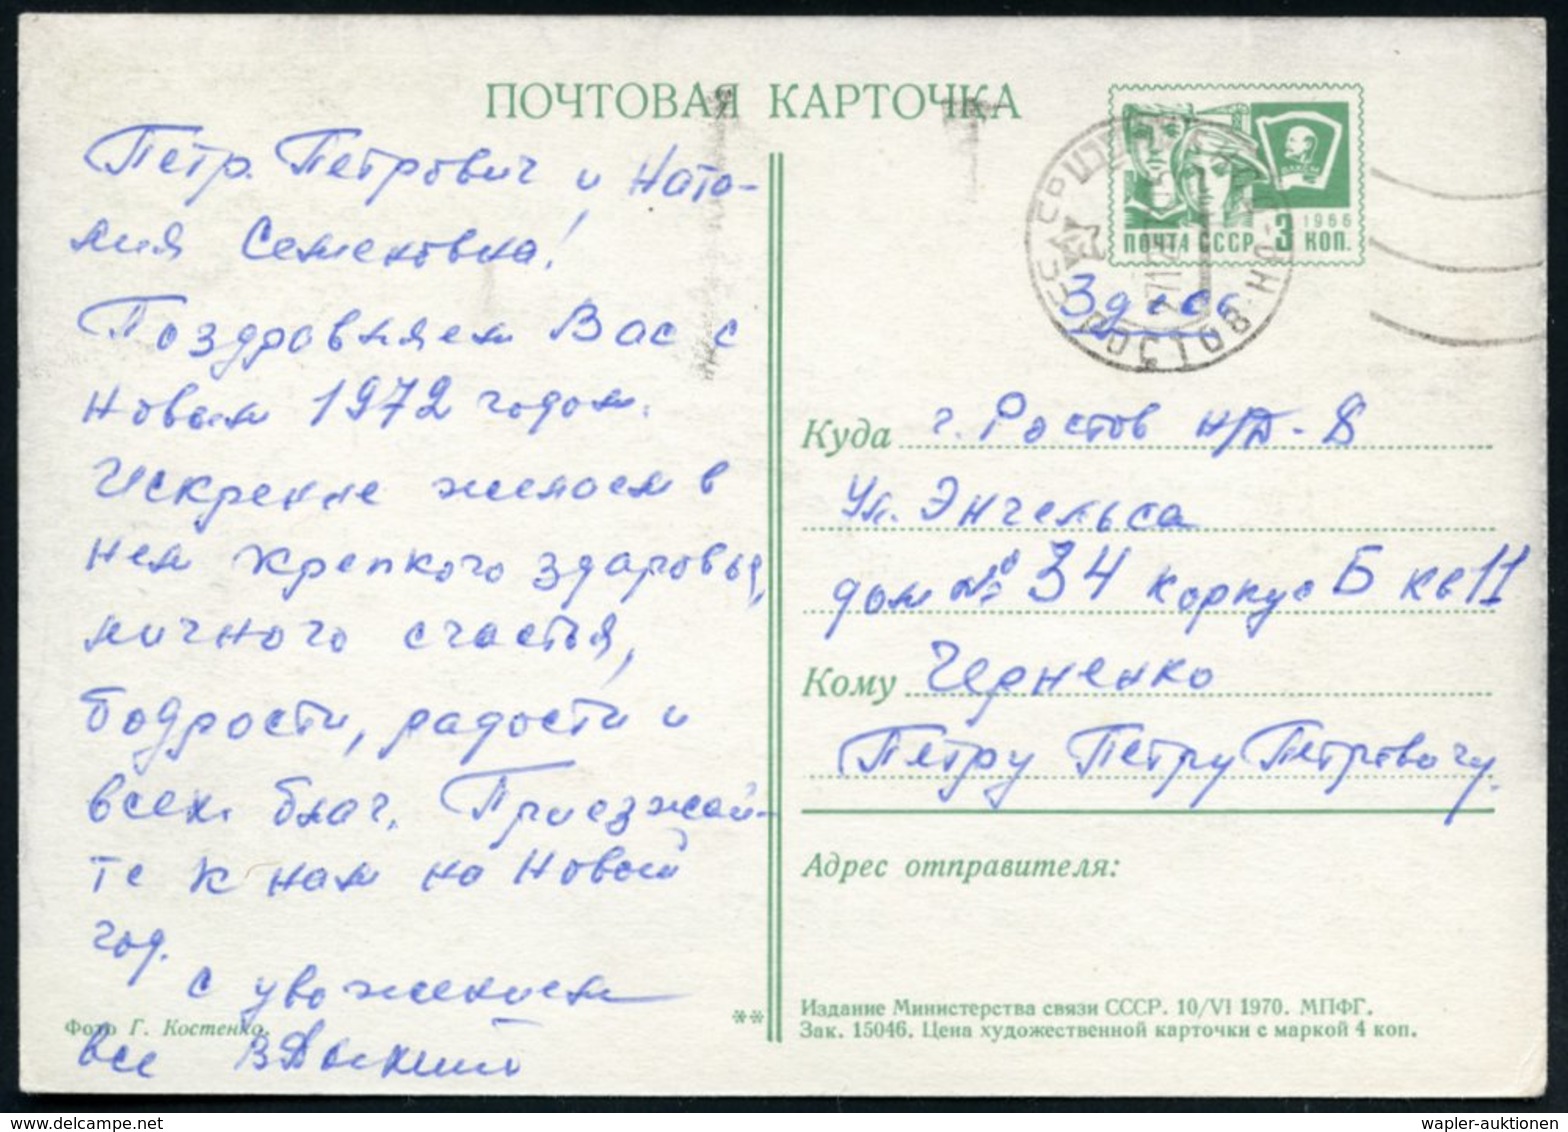 ПОЧТОВАЯ КАРТОЧКА
Петр Петрович и Ната-
лия Семеновна!
Поздравляем Вас с
Новым 1972 годом.
Искренне желаем в
нем крепкого здаровья,
личного счастья,
бодрости, радости и
всех благ. Приезжай-
те к нам на Новый
год.
с уважением
все
Фото Г. Костенко.
**
1966
ПОЧТА СССР 3 КОП.
Здесь
Куда г. Ростов н/Д-8
Ул. Энгельса
дом № 34 корпус Б кв 11
Кому Черненко
Петру Петру Петровичу.
Адрес отправителя:
Издание Министерства связи СССР. 10/VI 1970. МПФГ.
Зак. 15046. Цена художественной карточки с маркой 4 коп.
wapler-auktionen